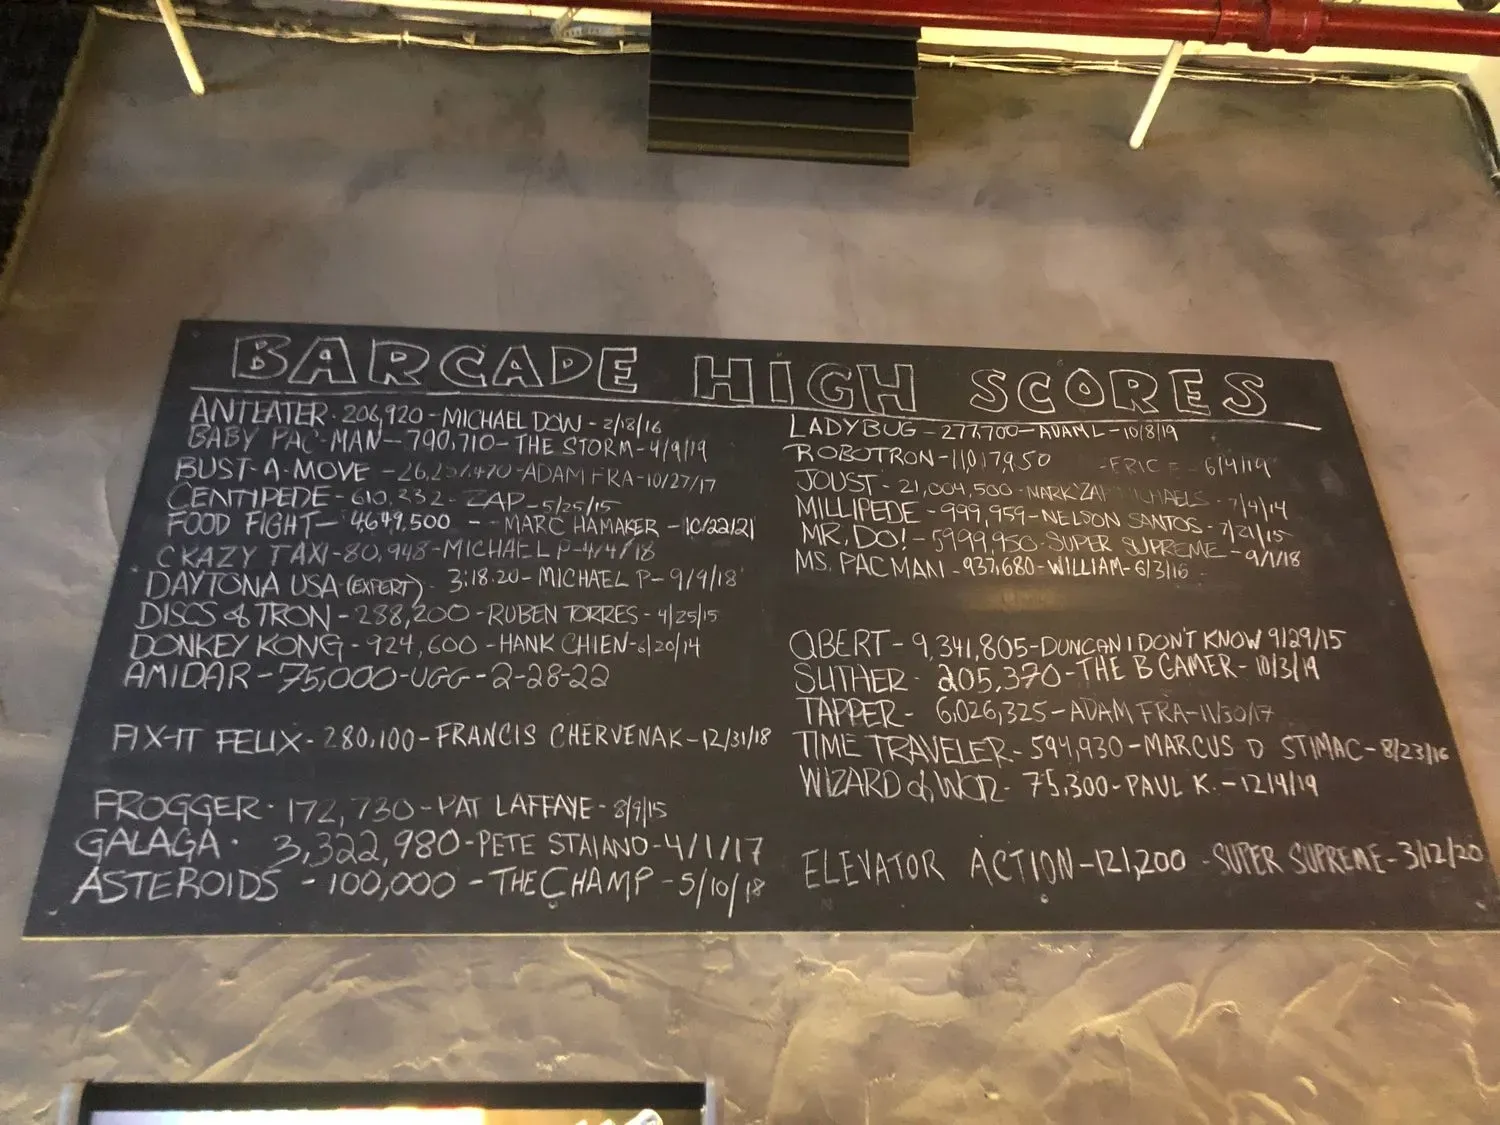 BARCADE HIGH SCORES
ANTEATER - 206,920 - MICHAEL DOW - 2/18/16
BABY PAC-MAN - 790,710 - THE STORM - 4/9/19
BUST-A-MOVE - ADAM FRA - 10/27/17
CENTIPEDE - 610,332 - ZAP - 5/25/15
FOOD FIGHT - 4,649,500 - MARC HAMAKER - 10/22/21
CRAZY TAXI - 80,948 - MICHAEL P - 4/4/18
DAYTONA USA (EXPERT) - 3:18.20 - MICHAEL P - 9/9/18
DISCS of TRON - 288,200 - RUBEN TORRES - 4/25/15
DONKEY KONG - 924,600 - HANK CHIEN - 6/20/14
AMIDAR - 75,000 - UGG - 2-28-22
FIX-IT FELIX - 280,100 - FRANCIS CHERVENAK - 12/31/18
FROGGER - 172,730 - PAT LAFFAYE - 8/9/15
GALAGA - 3,322,980 - PETE STAIANO - 4/1/17
ASTEROIDS - 100,000 - THE CHAMP - 5/10/18
LADYBUG - 277,700 - ADAM L - 10/8/19
ROBOTRON - 11,017,950 - ERIC - 6/4/19
JOUST - 21,004,500 - MARK - 7/4/14
MILLIPEDE - 999,959 - NELSON SANTOS - 7/21/15
MR. DO! - 5,999,950 - SUPER SUPREME - 9/1/18
MS. PACMAN - 937,680 - WILLIAM - 6/3/16
QBERT - 9,341,805 - DUNCAN I DON'T KNOW 9/29/15
SLITHER - 205,370 - THE B GAMER - 10/3/19
TAPPER - 6,026,325 - ADAM FRA - 11/30/17
TIME TRAVELER - 594,930 - MARCUS D STIMAC - 8/23/16
WIZARD of WOR - 75,300 - PAUL K. - 12/4/19
ELEVATOR ACTION - 121,200 - SUPER SUPREME - 3/12/20